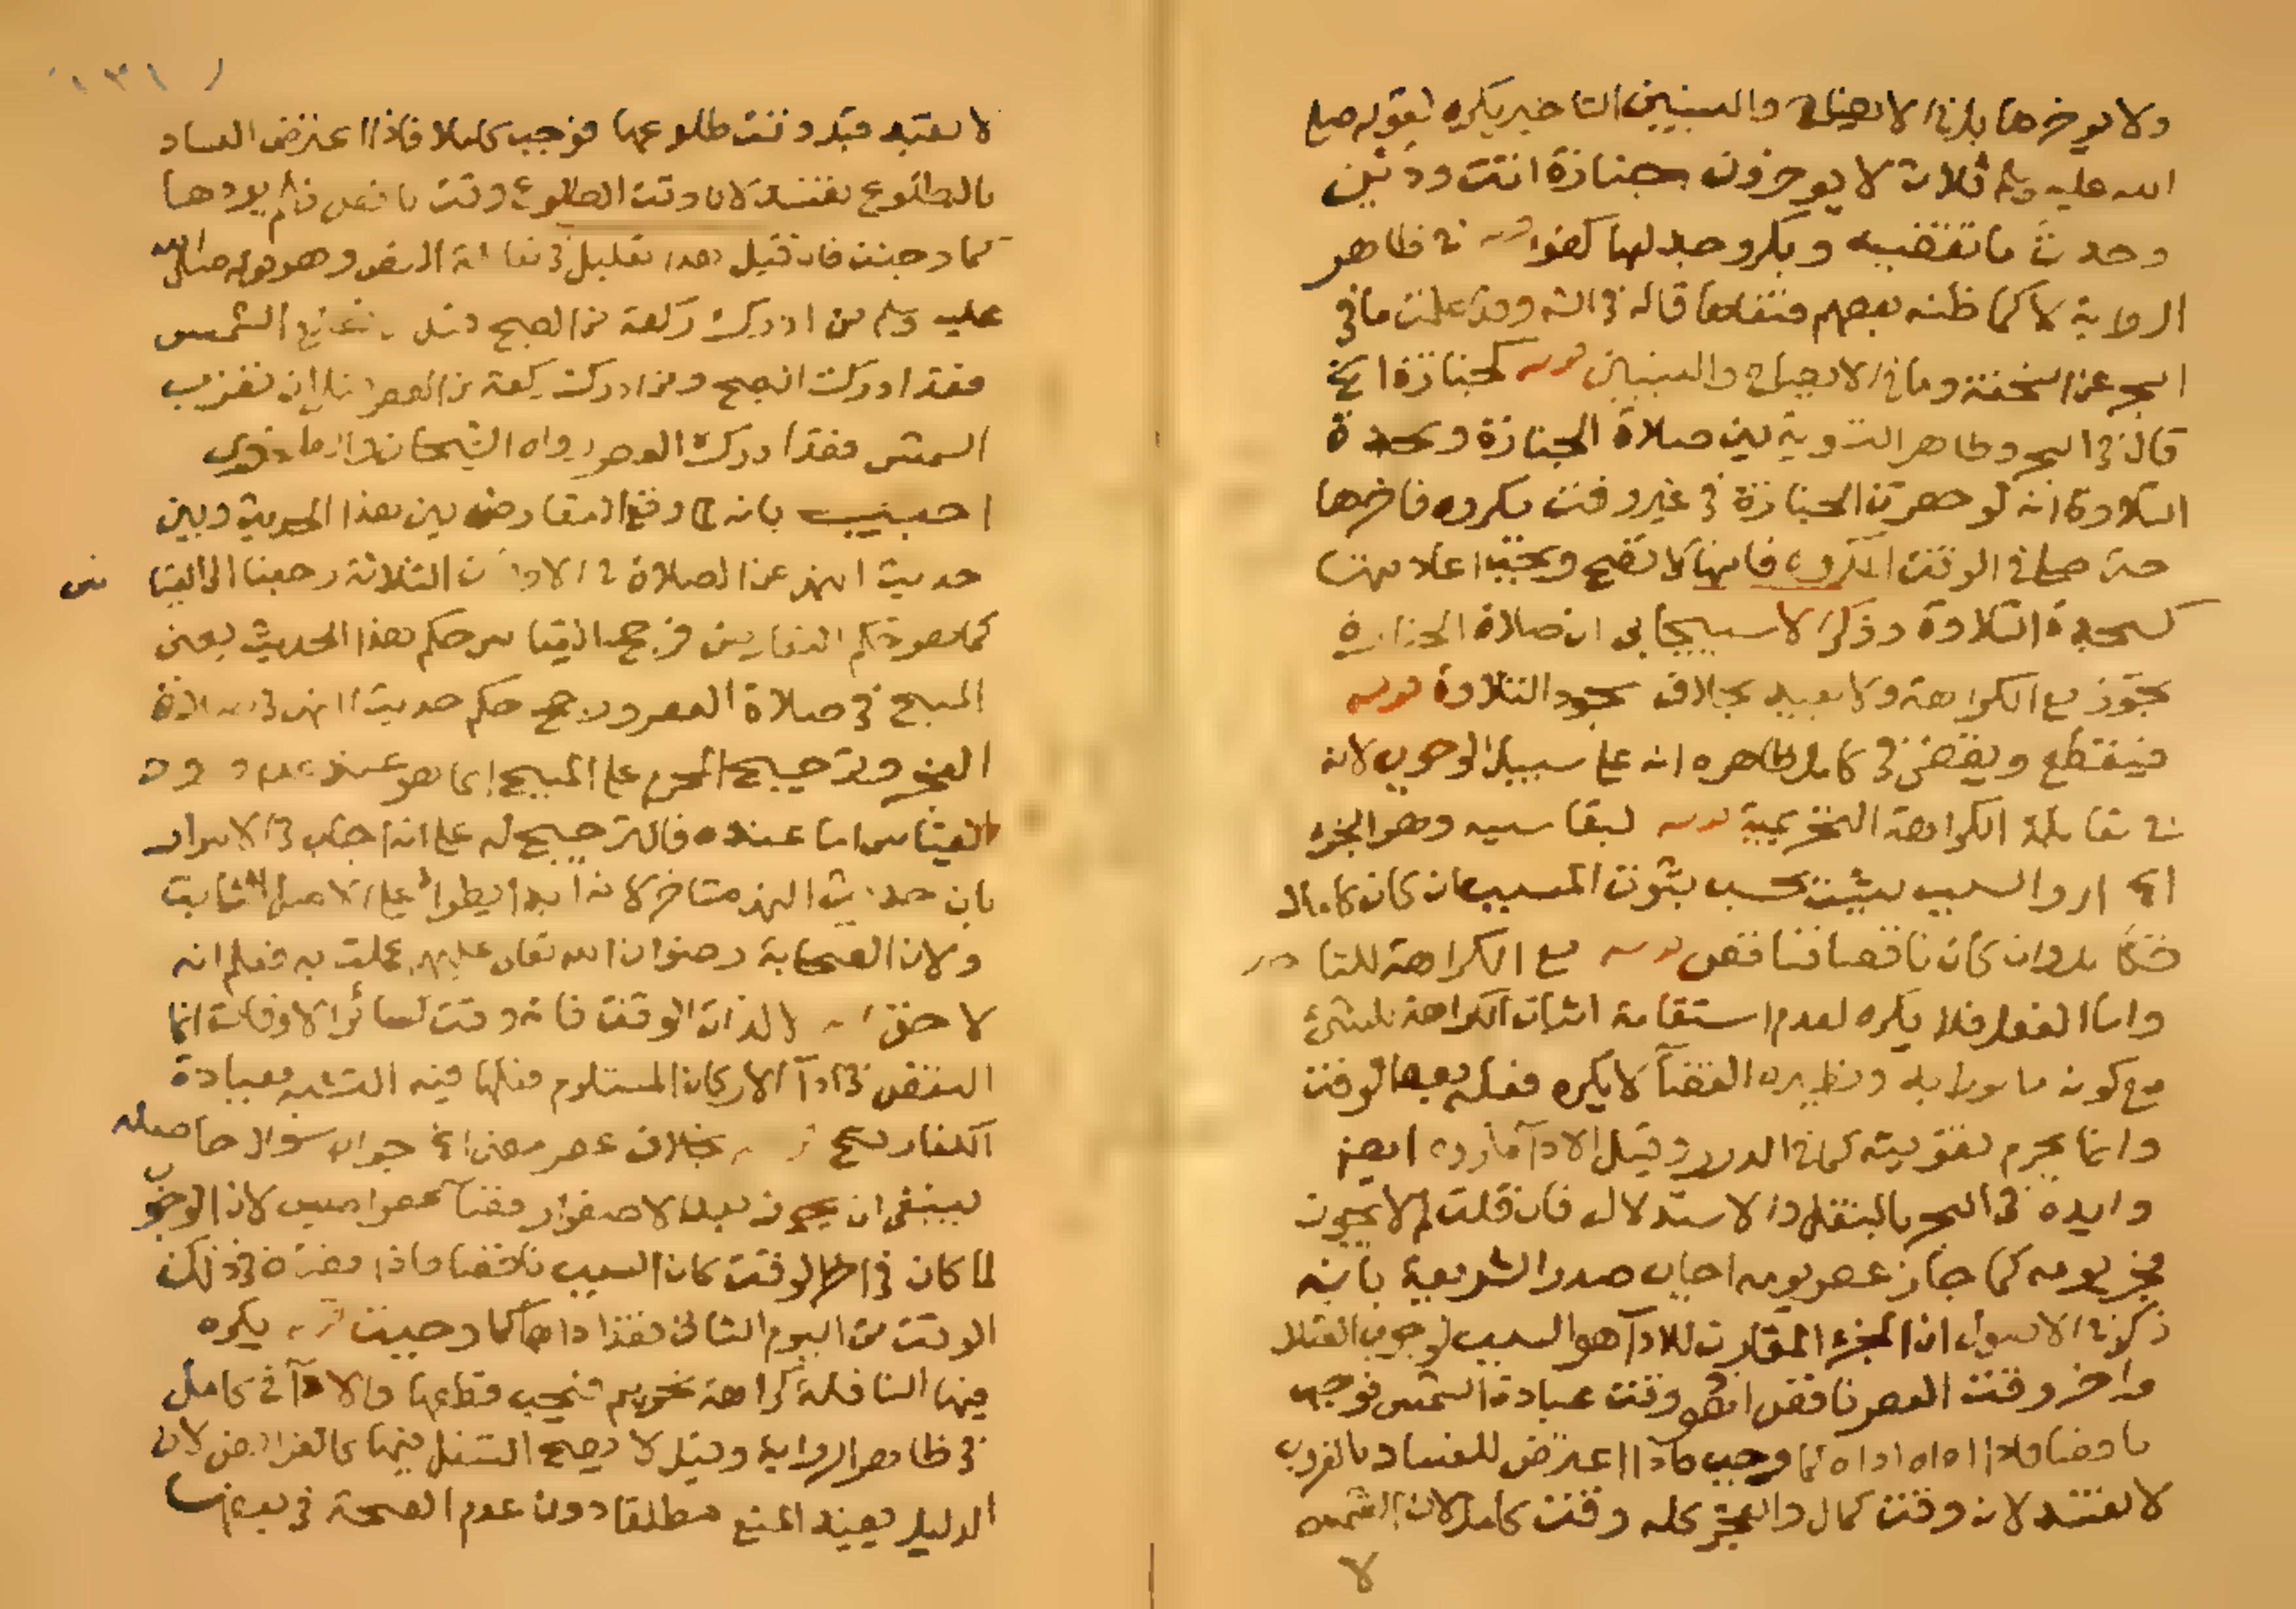 ولا يوخرها بل في الايضاح والتبيين التاخير يكره لقوله صلى
الله عليه وسلم ثلاث لا يوخرون جنازة اتت ودين
وجدت ما تقضيه وبكر وجد لها كفوا قوله في ظاهر
الرواية لا كما ظنه بعضهم قاله في وقد علمت ما في
البحر عن التحفة وما في الايضاح والتبيين قوله كجنازة الخ
قال في البحر وظاهر التسوية بين صلاة الجنازة وسجدة
التلاوة انه لو حضرت الجنازة في غير وقت مكروه فاخرها
حتى صلى في الوقت المكروه فانها لا تصح ويجب اعادتها
كسجدة التلاوة وذكر الاسبيجابي ان صلاة الجنازة
تجوز مع الكراهة ولا يعيد بخلاف سجود التلاوة قوله
فيقطع ويقضى في كامل ظاهره انه على سبيل الوجوب لانه
في مقابلة الكراهة التحريمية قوله لبقا سببه وهو الجزء
الخ السبب يثبت بحسب ثبوت المسبب ان كان كاملا
وان كان ناقصا فناقص قوله مع الكراهة للتا
واما الفعل فلا يكره لعدم استقامة اثبات الكراهة للشئ
مع كونه مامورا به ونظيره القضآ لا يكره فعله بعد الوقت
وانما يحرم تفويته كما في الدرر وقيل الادآ ايضا
وايده في البحر بالنقل والاستدلال فان قلت لم لا يجوز
فجر يومه كما جاز عصر يومه اجاب صدر الشريعة بانه
ذكر في الاصول ان الجزء المقارن للادآ هو السبب لوجوب الصلاة
واخر وقت العصر ناقص اذ هو وقت عبادة الشمس فوجب
ناقصا فاذا اداه اداه كما وجب فاذا اعترض الفساد بالغروب
لا تفسد لانه وقت كمال والفجر كله وقت كامل لان الشمس
لا
١٣١
لا تعبد قبل وقت طلوعها فوجب كاملا فاذا اعترض الفساد
بالطلوع تفسد لان وقت الطلوع وقت ناقص فلم يودها
كما وجبت فان قيل هذا تعليل في مقابلة النص وهو قوله صلى الله
عليه وسلم من ادرك ركعة من الصبح قبل ان تطلع الشمس
فقد ادرك الصبح ومن ادرك ركعة من العصر قبل ان تغرب
الشمس فقد ادرك العصر رواه الشيخان
اجيب بانه لما وقع التعارض بين هذا الحديث وبين
حديث النهي عن الصلاة في الاوقات الثلاثة رجعنا الى القيا
س
كما هو حكم التعارض فرجح القياس حكم هذا الحديث يعنى
المبيح في صلاة العصر ورجح حكم حديث النهي في صلاة
الفجر وترجيح المحرم على المبيح انما هو عند عدم
القياس اما عنده فالترجيح له على انه اجاب في الاسرار
بان حديث النهي متاخر لانه ابدا يطرأ على الاصل الثابت
ولان الصحابة رضوان الله تعالى عليهم عملت به فعلم انه
لاحق قوله لا لذات الوقت فانه وقت لسائر الاوقات انما
النقص في ادآ الاركان المستلزم فعلها فيه التشبه بعبادة
الكفار فتح قوله بخلاف عصر مضى الخ جواب سؤال حاصله
ينبغى ان يجوز بعد الاصفرار قضآ عصر امس لان الوجوب
لما كان في اخر الوقت كان السبب ناقصا فاذا قضاه في ذلك
الوقت من اليوم الثانى فقد اداها كما وجبت قوله يكره
فيها النافلة كراهة تحريم فيجب قطعها والادآ في كامل
في ظاهر الرواية وقيل لا يصح التنفل فيها كالفرايض لان
الدليل يفيد المنع مطلقا دون عدم الصحة في بعضها